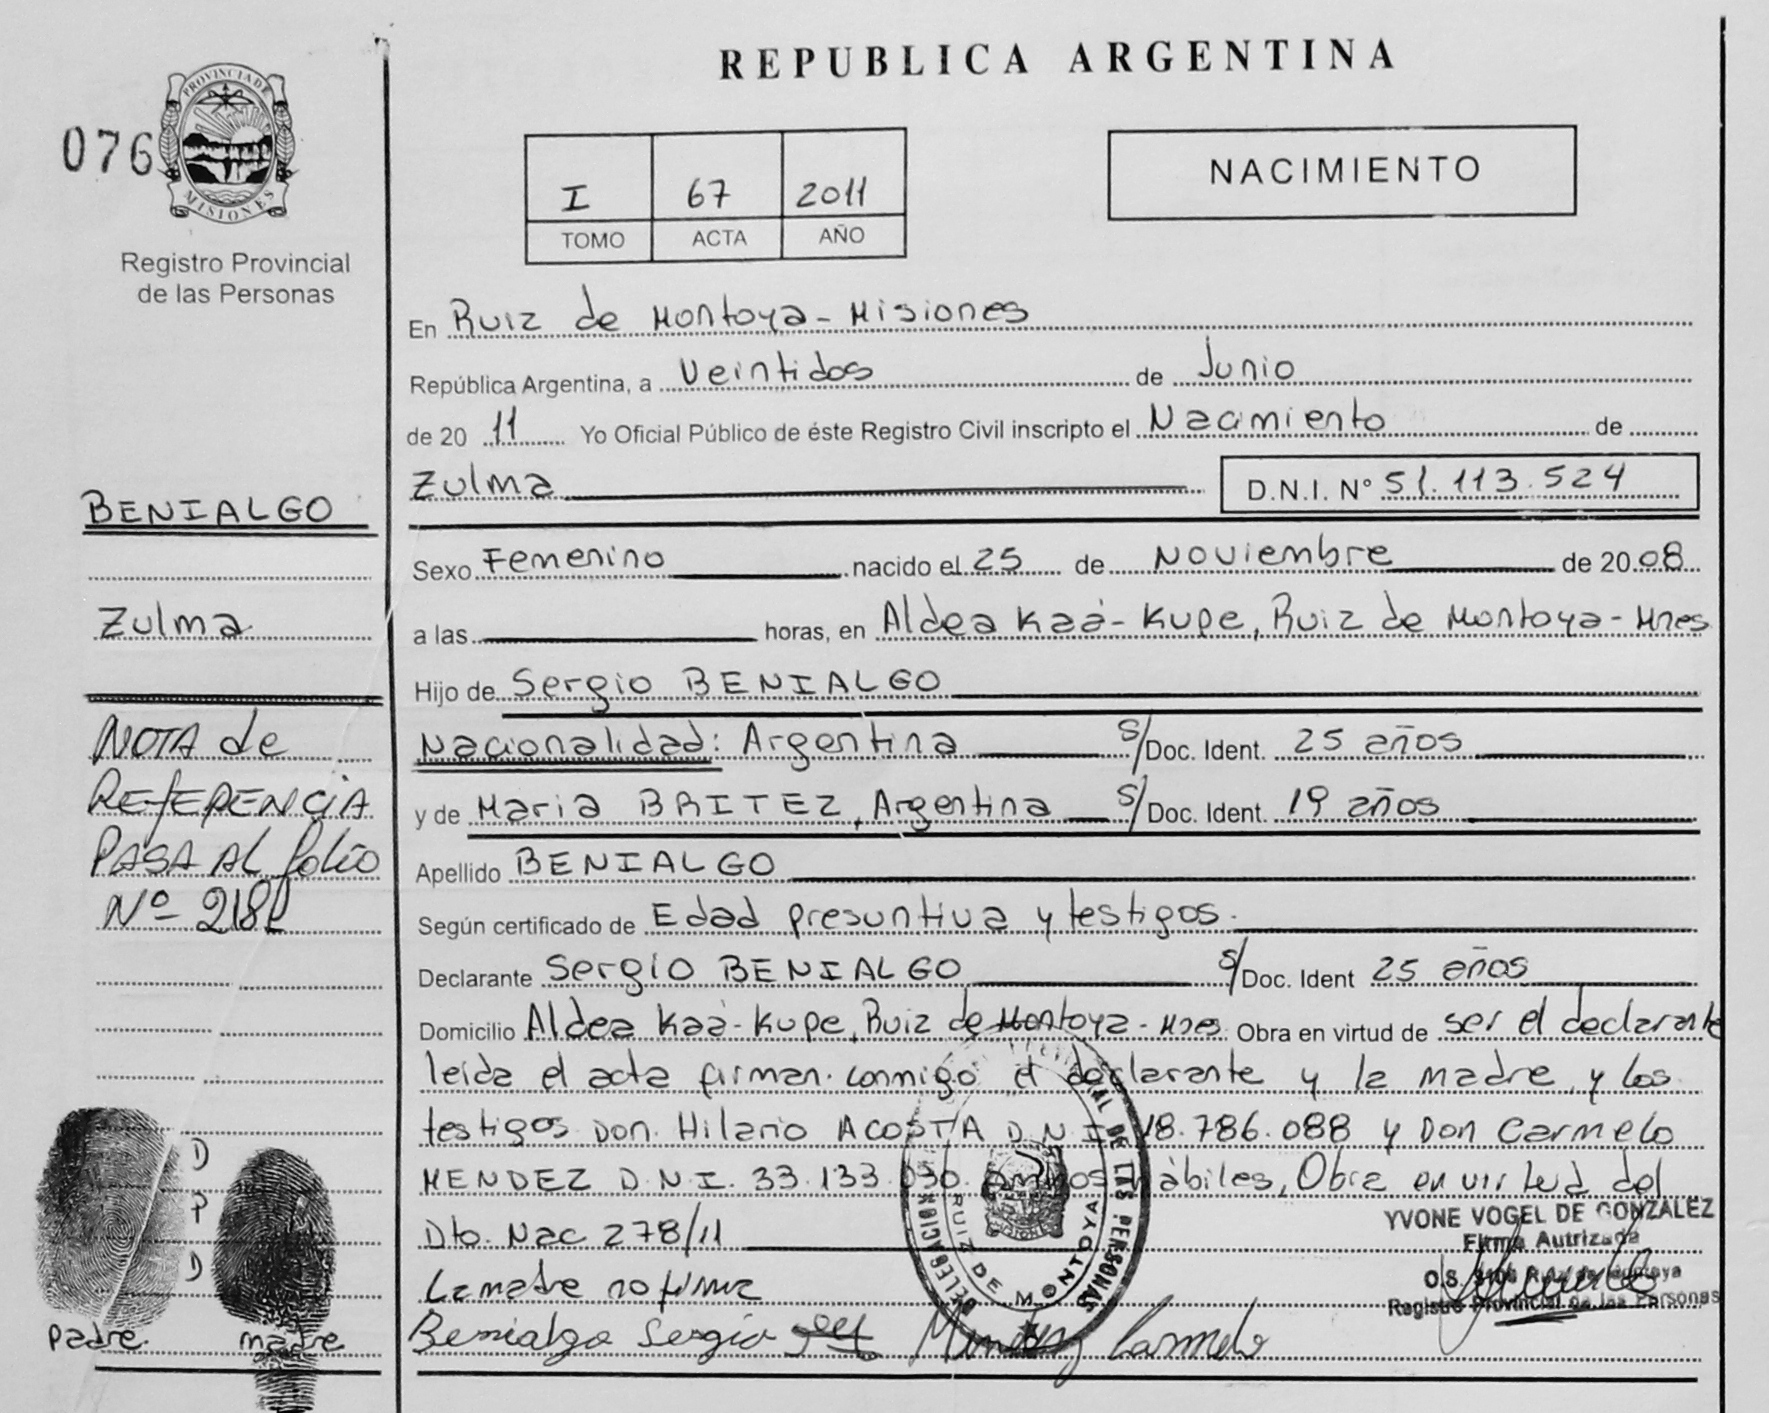 REPUBLICA ARGENTINA
PROVINCIA DE
MISIONES
076
Registro Provincial
de las Personas
I 67 2011
TOMO ACTA AÑO
NACIMIENTO
En Ruiz de Montoya - Misiones
República Argentina, a Veintidos de Junio
de 20 11 Yo Oficial Público de éste Registro Civil inscripto el Nacimiento de
Zulma D.N.I. Nº 51.113.524
Sexo Femenino nacido el 25 de Noviembre de 20 08
a las horas, en Aldea Kaá-Kupe, Ruiz de Montoya - Mnes
Hijo de Sergio BENIALGO
Nacionalidad: Argentina S/Doc. Ident. 25 años
y de Maria BRITEZ, Argentina S/Doc. Ident. 19 años
Apellido BENIALGO
Según certificado de Edad presuntiva y testigos.
Declarante Sergio BENIALGO S/Doc. Ident 25 años
Domicilio Aldea Kaá-Kupe, Ruiz de Montoya - Mnes. Obra en virtud de ser el declarante
leida el acta firman conmigo el declarante y la madre y los
testigos Don Hilario ACOSTA D.N.I. 18.786.088 y Don Carmelo
MENDEZ D.N.I. 33.133.030. Ambos hábiles, Obra en virtud del
Dto. Nac 278/11
La madre no firma
Benialgo Sergio Mendez Carmelo
BENIALGO
Zulma
NOTA de
REFERENCIA
PASA AL folio
Nº 218
D
P
D
padre madre
DELEGACION
PROVINCIAL DE LAS PERSONAS
RUIZ DE MONTOYA
YVONE VOGEL DE GONZALEZ
Firma Autrizada
O.S. 3108 Ruiz de Montoya
Registro Provincial de las Personas